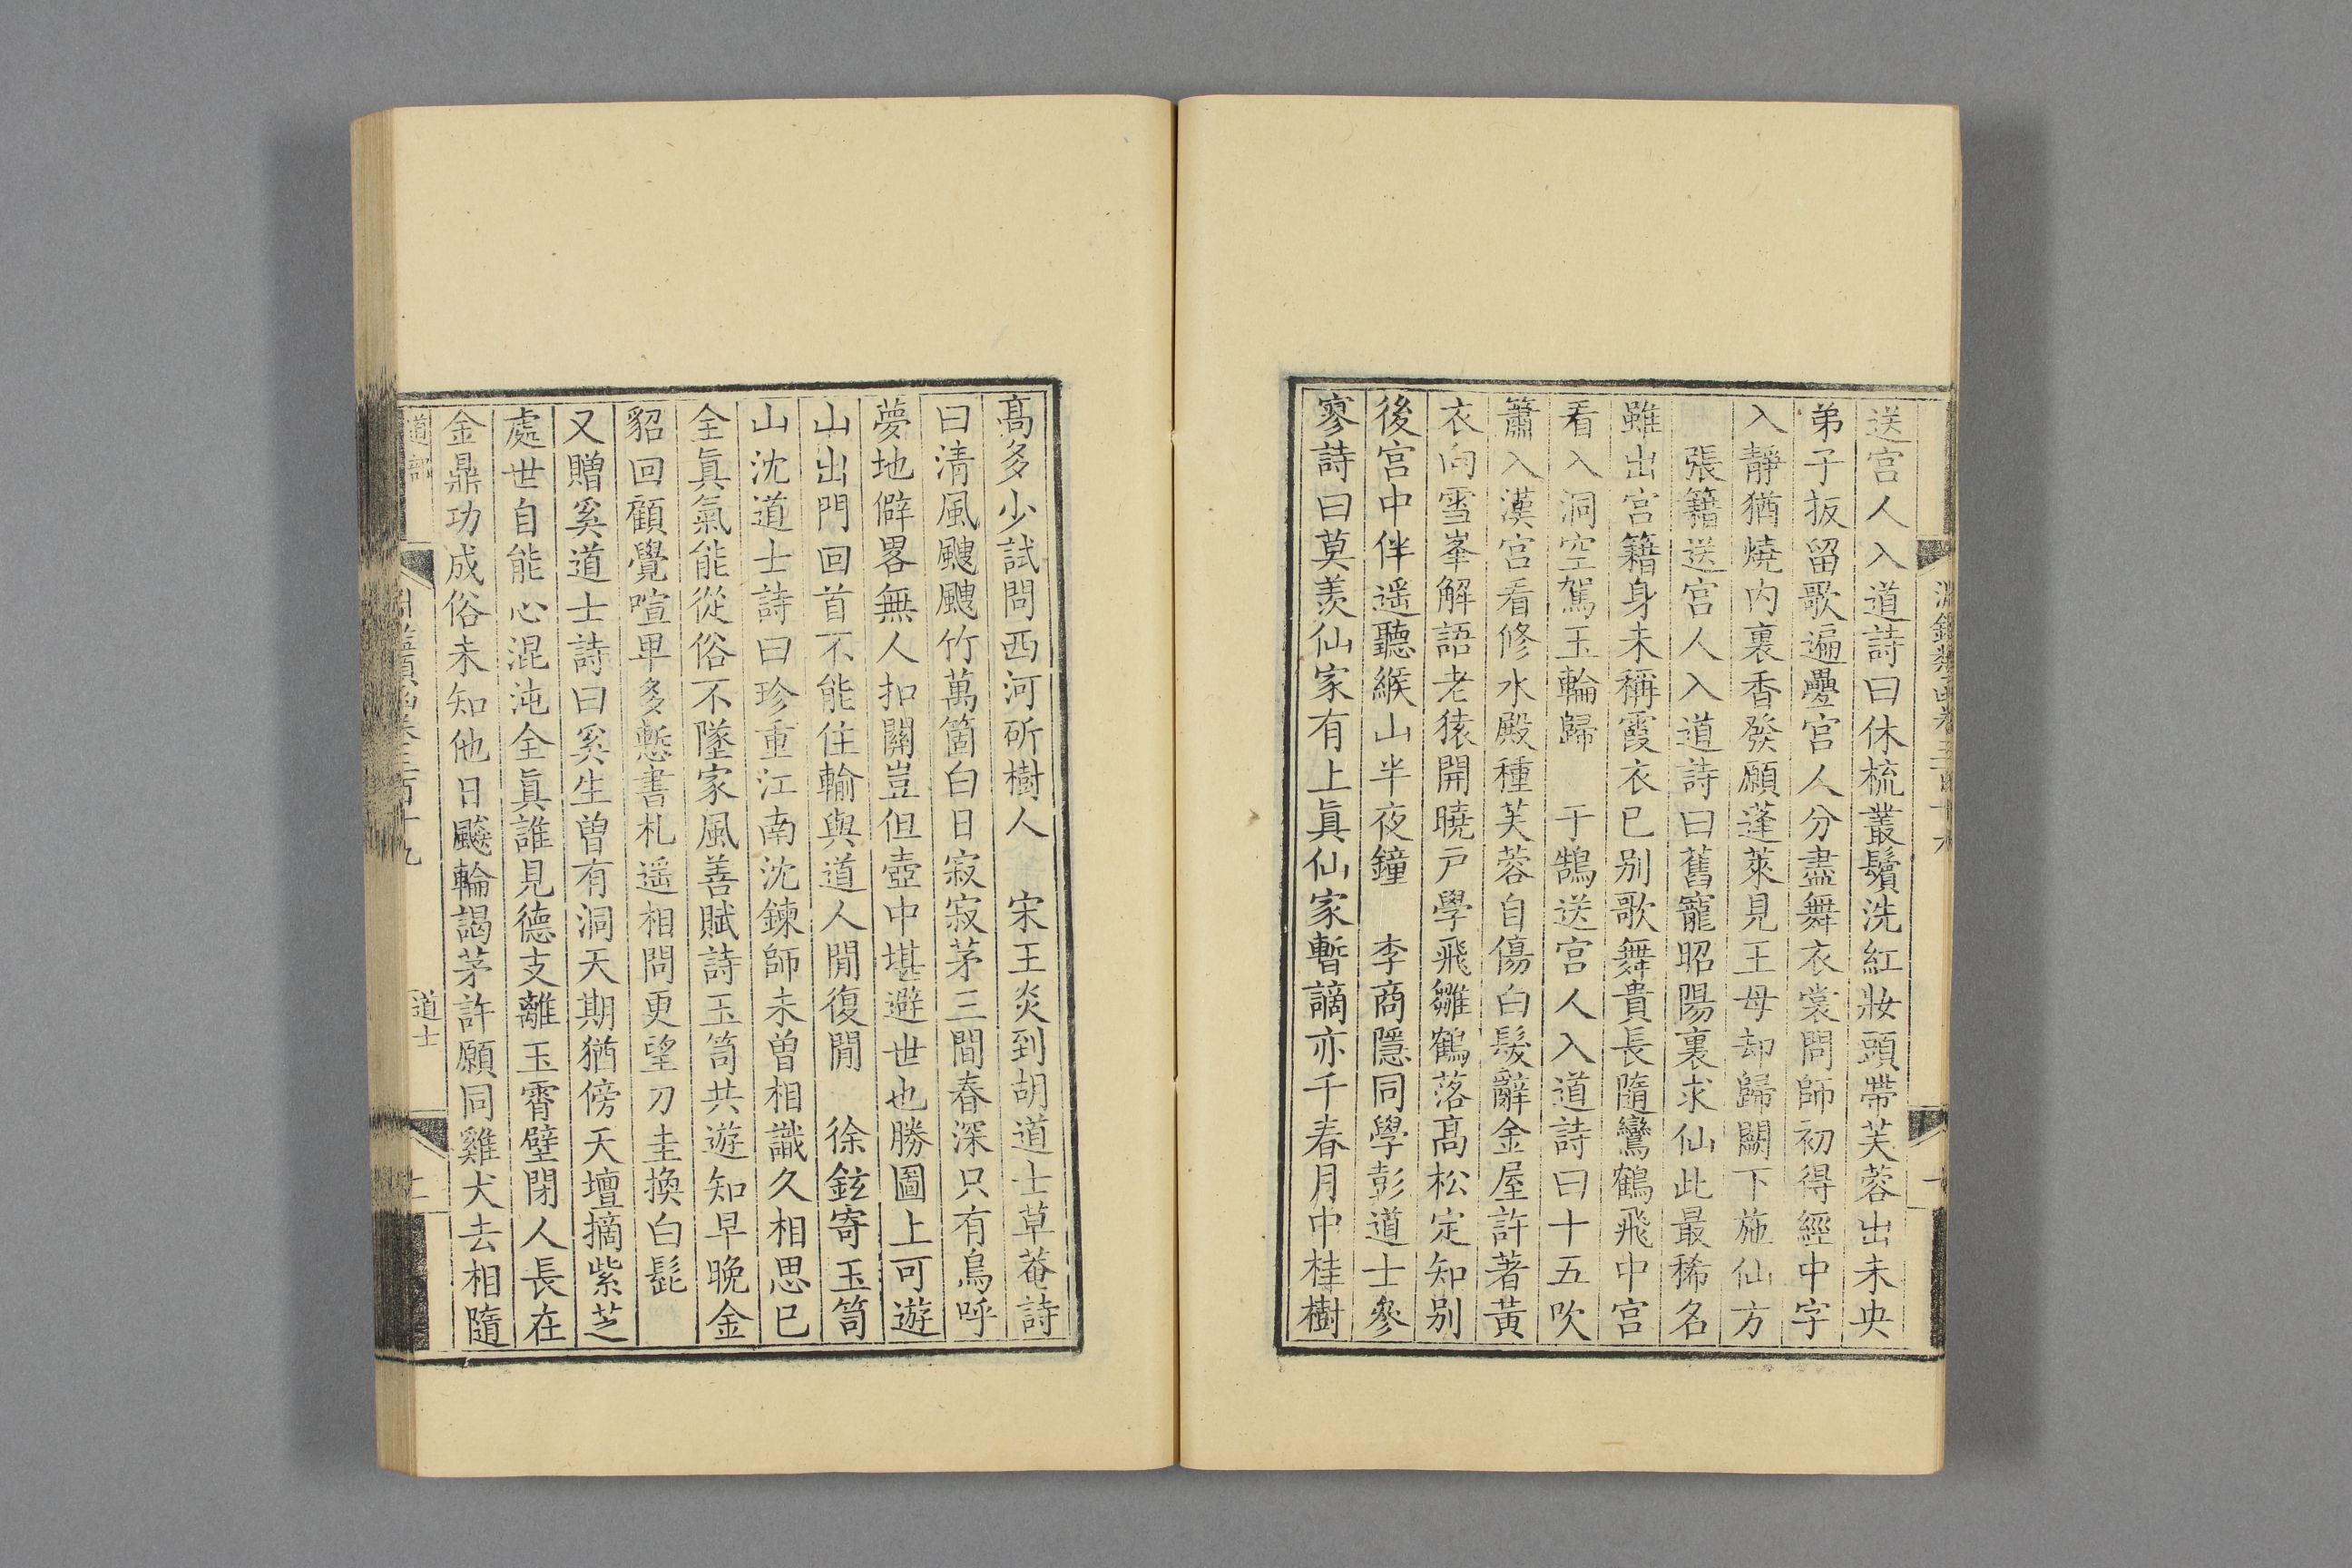 送宮人入道詩曰休梳叢鬢洗紅妝頭帶芙蓉出未央
弟子扳留歌遍疊宮人分盡舞衣裳問師初得經中字
入靜猶燒内裏香發願蓬萊見王母却歸闕下施仙方
張籍送宮人入道詩曰舊寵昭陽裏求仙此最稀名
雖出宮籍身未稱霞衣已别歌舞貴長隨鸞鶴飛中宮
看入洞空駕玉輪歸 于鵠送宮人入道詩曰十五吹
簫入漢宮看修水殿種芙蓉自傷白髮辭金屋許著黃
衣向雪峯解語老猿開曉户學飛雛鶴落髙松定知别
後宮中伴遥聽緱山半夜鐘 李商隱同學彭道士參
寥詩曰莫羨仙家有上眞仙家暫謫亦千春月中桂樹
髙多少試問西河斫樹人 宋王炎到胡道士草菴詩
曰清風颼颼竹萬箇白日寂寂茅三間春深只有鳥呼
夢地僻畧無人扣關豈但壺中堪避世也勝圖上可遊
山出門回首不能住輸與道人閒復閒 徐鉉寄玉笥
山沈道士詩曰珍重江南沈鍊師未曾相識久相思已
全眞氣能從俗不墜家風善賦詩玉笥共遊知早晚金
貂回顧覺喧卑多慙書札遥相問更望刀圭換白髭
又贈奚道士詩曰奚生曾有洞天期猶傍天壇摘紫芝
處世自能心混沌全眞誰見德支離玉霄壁閉人長在
金鼎功成俗未知他日飈輪謁茅許願同雞犬去相隨
道部
道士